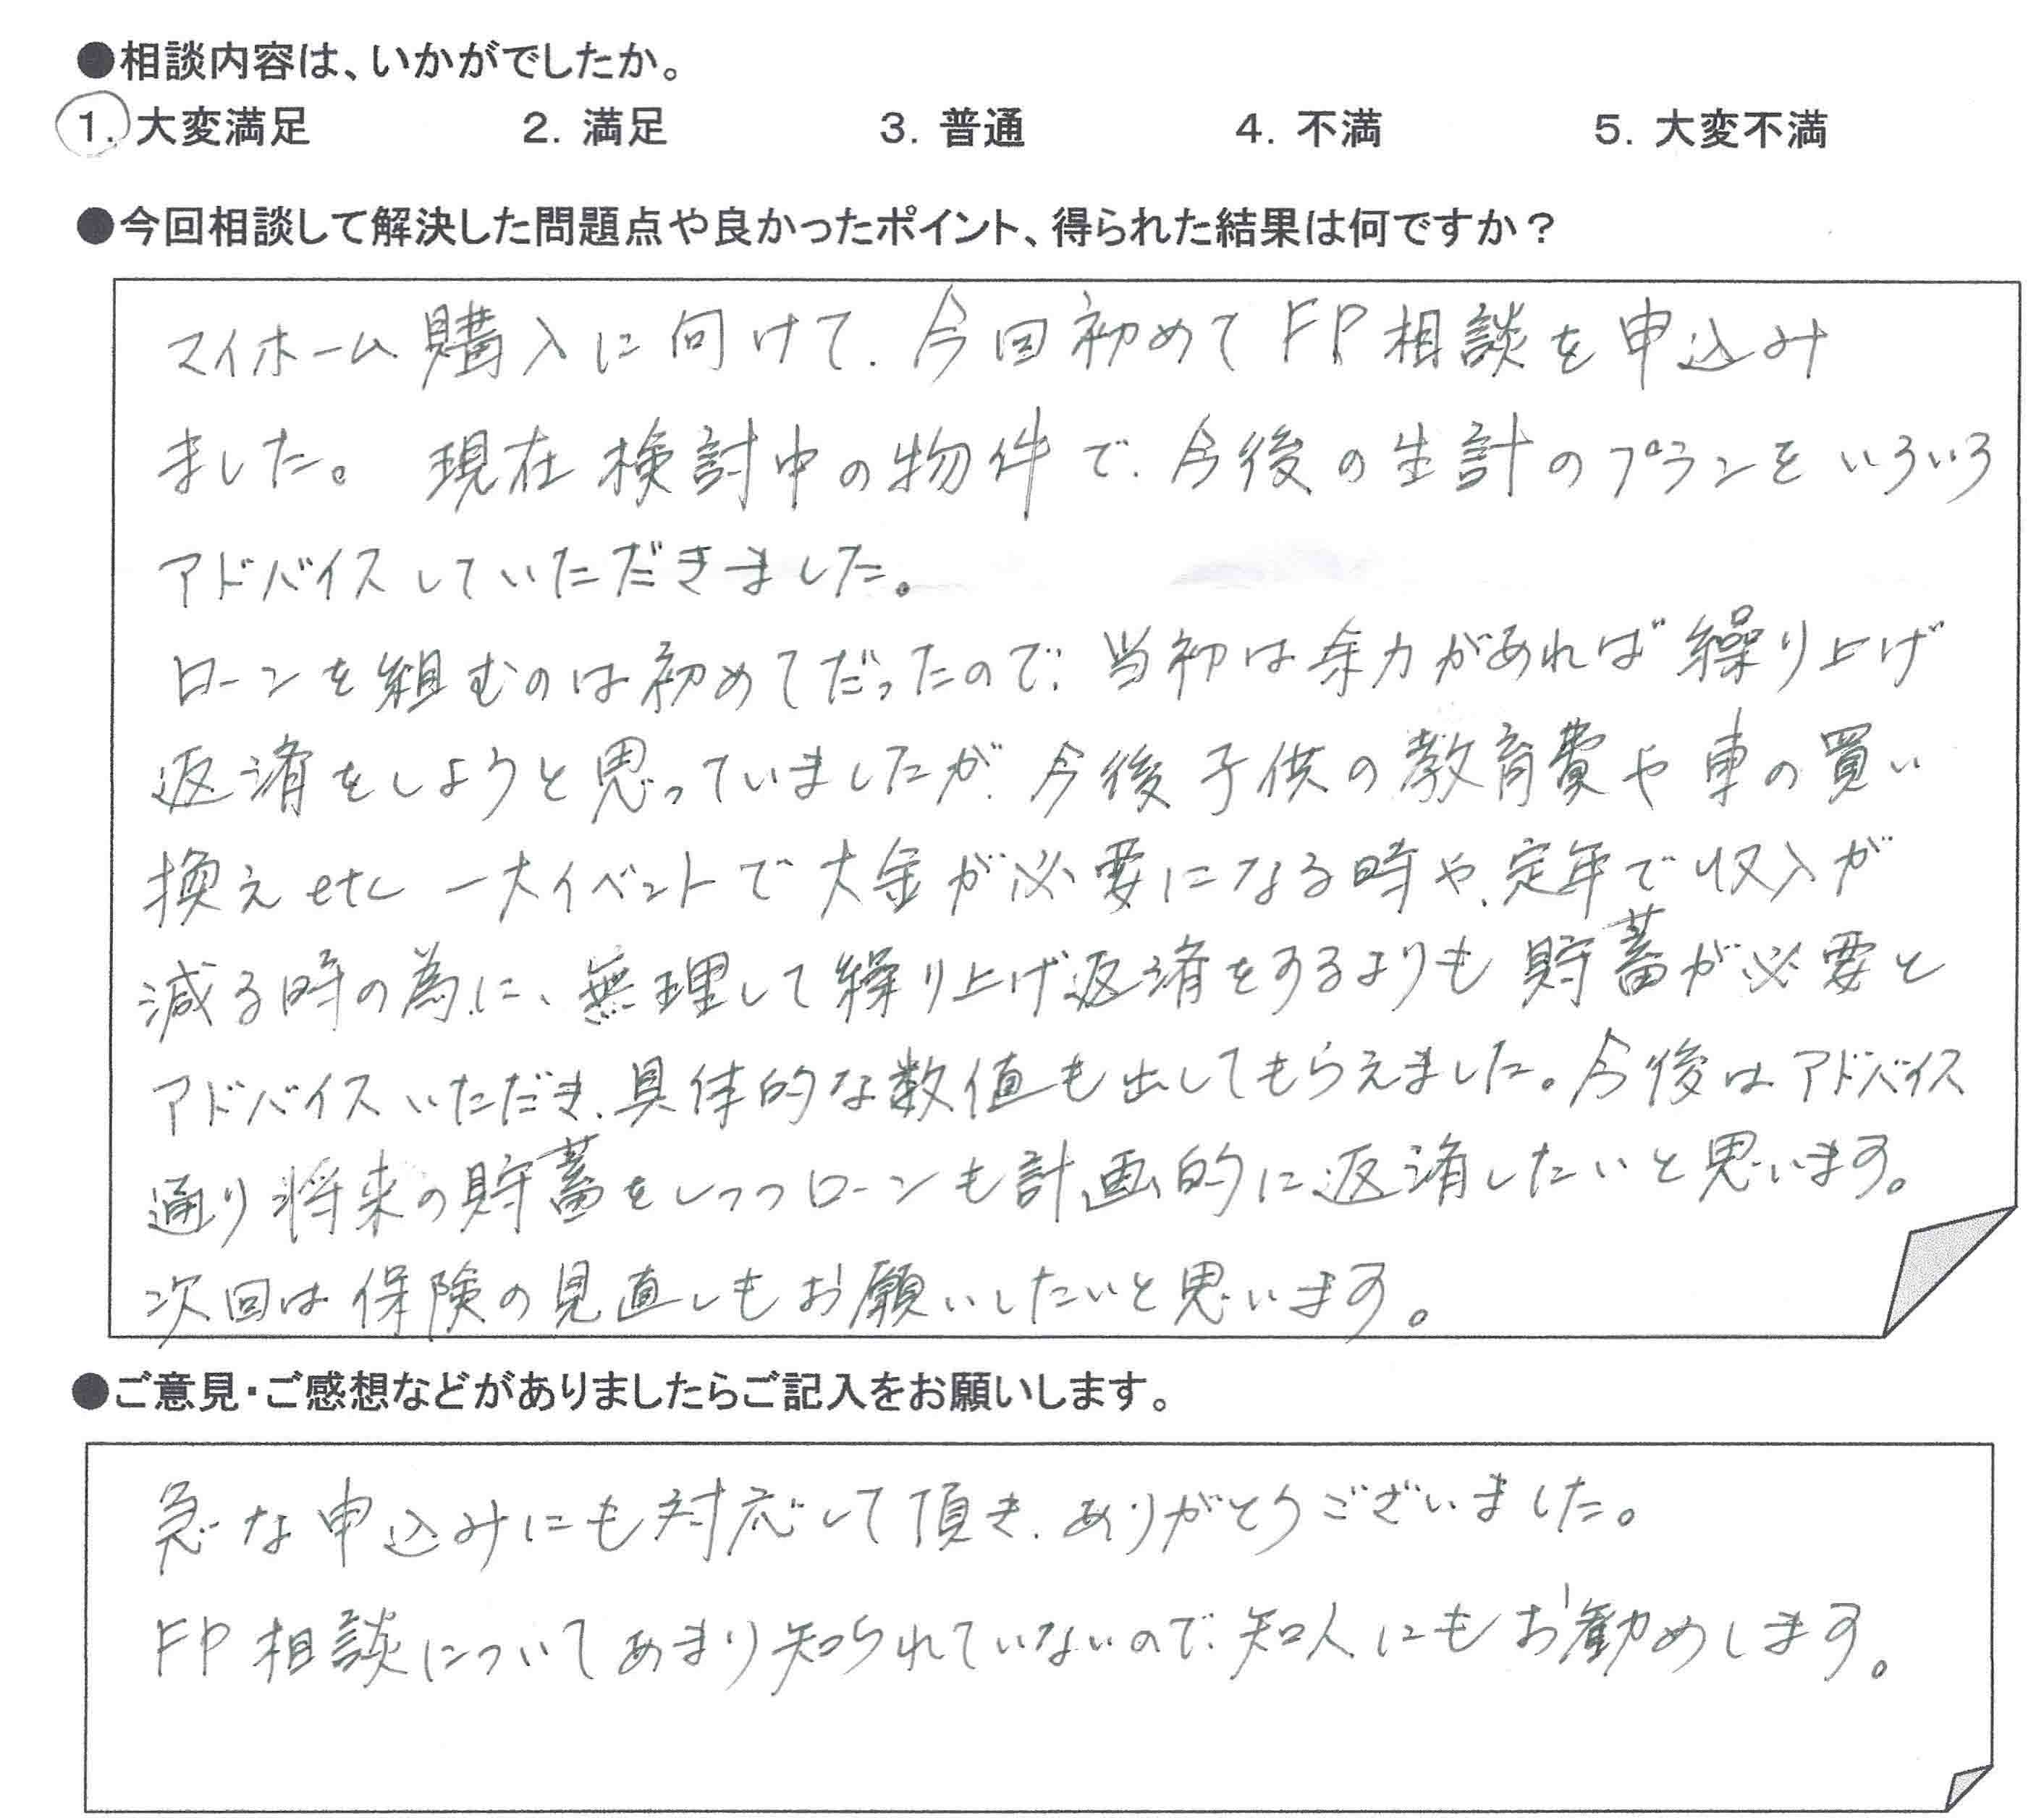 ●相談内容は、いかがでしたか。
1. 大変満足 2. 満足 3. 普通 4. 不満 5. 大変不満
●今回相談して解決した問題点や良かったポイント、得られた結果は何ですか？
マイホーム購入に向けて、今回初めてFP相談を申込み
ました。現在検討中の物件で、今後の生計のプランをいろいろ
アドバイスしていただきました。
ローンを組むのは初めてだったので、当初は余力があれば繰り上げ
返済をしようと思っていましたが、今後子供の教育費や車の買い
換えetc一大イベントで大金が必要になる時や、定年で収入が
減る時の為に、無理して繰り上げ返済をするよりも貯蓄が必要と
アドバイスいただき、具体的な数値も出してもらえました。今後はアドバイス
通り将来の貯蓄をしつつローンも計画的に返済したいと思います。
次回は保険の見直しもお願いしたいと思います。
●ご意見・ご感想などがありましたらご記入をお願いします。
急な申込みにも対応して頂き、ありがとうございました。
FP相談についてあまり知られていないので、知人にもお勧めします。